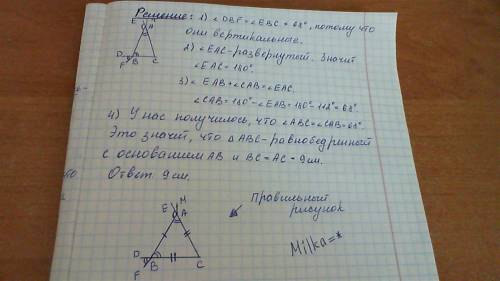 Решение: 1) ∠DBF=∠EBC=68°, потому что
они вертикальные.
2) ∠EAC-развернутый. Значит
∠EAC=180°.
3) ∠EAB+∠CAB=∠EAC.
∠CAB=180°-∠EAB=180°-112°=68°.
4) У нас получилось, что ∠ABC=∠CAB=68°.
Это значит, что ΔABC-равнобедренный
с основанием AB и BC=AC=9см.
Ответ 9см.
Правильный
рисунок
Milka=*
E
A
D
B
C
F
M
E
A
D
B
C
F